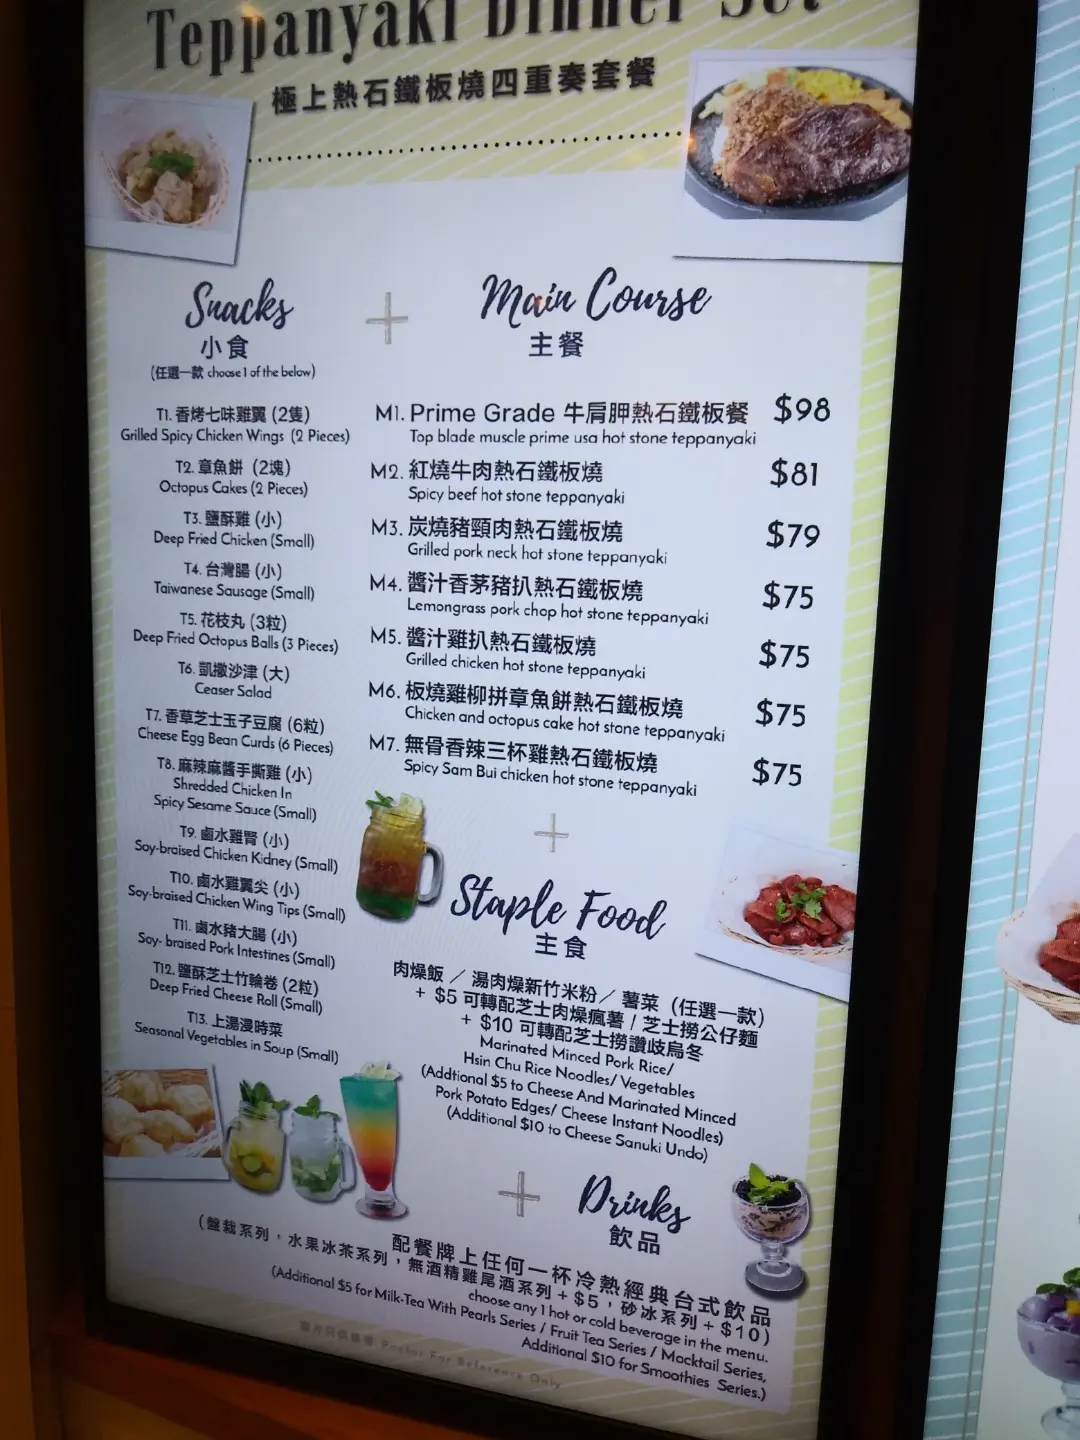 Teppanyaki Dinner Set
極上熱石鐵板燒四重奏套餐
Snacks
小食
(任選一款 choose 1 of the below)
T1. 香烤七味雞翼 (2隻)
Grilled Spicy Chicken Wings (2 Pieces)
T2. 章魚餅 (2塊)
Octopus Cakes (2 Pieces)
T3. 鹽酥雞 (小)
Deep Fried Chicken (Small)
T4. 台灣腸 (小)
Taiwanese Sausage (Small)
T5. 花枝丸 (3粒)
Deep Fried Octopus Balls (3 Pieces)
T6. 凱撒沙津 (大)
Ceaser Salad
T7. 香草芝士玉子豆腐 (6粒)
Cheese Egg Bean Curds (6 Pieces)
T8. 麻辣麻醬手撕雞 (小)
Shredded Chicken In
Spicy Sesame Sauce (Small)
T9. 鹵水雞腎 (小)
Soy-braised Chicken Kidney (Small)
T10. 鹵水雞翼尖 (小)
Soy-braised Chicken Wing Tips (Small)
T11. 鹵水豬大腸 (小)
Soy- braised Pork Intestines (Small)
T12. 鹽酥芝士竹輪卷 (2粒)
Deep Fried Cheese Roll (Small)
T13. 上湯浸時菜
Seasonal Vegetables in Soup (Small)
+
Main Course
主餐
M1. Prime Grade 牛肩胛熱石鐵板餐 $98
Top blade muscle prime usa hot stone teppanyaki
M2. 紅燒牛肉熱石鐵板燒 $81
Spicy beef hot stone teppanyaki
M3. 炭燒豬頸肉熱石鐵板燒 $79
Grilled pork neck hot stone teppanyaki
M4. 醬汁香茅豬扒熱石鐵板燒 $75
Lemongrass pork chop hot stone teppanyaki
M5. 醬汁雞扒熱石鐵板燒 $75
Grilled chicken hot stone teppanyaki
M6. 板燒雞柳拼章魚餅熱石鐵板燒 $75
Chicken and octopus cake hot stone teppanyaki
M7. 無骨香辣三杯雞熱石鐵板燒 $75
Spicy Sam Bui chicken hot stone teppanyaki
+
Staple Food
主食
肉燥飯 / 湯肉燥新竹米粉 / 薯菜 (任選一款)
+ $5 可轉配芝士肉燥瘋薯 / 芝士撈公仔麵
+ $10 可轉配芝士撈讚歧烏冬
Marinated Minced Pork Rice/
Hsin Chu Rice Noodles/ Vegetables
(Addtional $5 to Cheese And Marinated Minced
Pork Potato Edges/ Cheese Instant Noodles)
(Additional $10 to Cheese Sanuki Undo)
+
Drinks
飲品
配餐牌上任何一杯冷熱經典台式飲品
(盤栽系列，水果冰茶系列，無酒精雞尾酒系列 + $5，砂冰系列 + $10)
choose any 1 hot or cold beverage in the menu.
(Additional $5 for Milk-Tea With Pearls Series / Fruit Tea Series / Mocktail Series,
Additional $10 for Smoothies Series.)
Poster For Reference Only